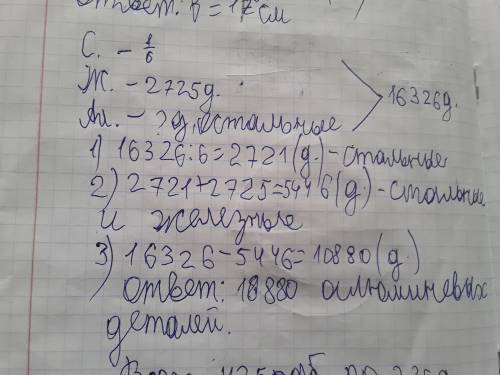 Ответ: b = 17 см
С. - 1/6
Ж. - 2725д.
Ал. - ? д, остальные
16326д.
1) 16326:6=2721(д.)-стальные
2) 2721+2725=5446(д.)-стальные
и железные
3) 16326-5446=10880(д.)
Ответ: 18880 алюминевых
деталей.